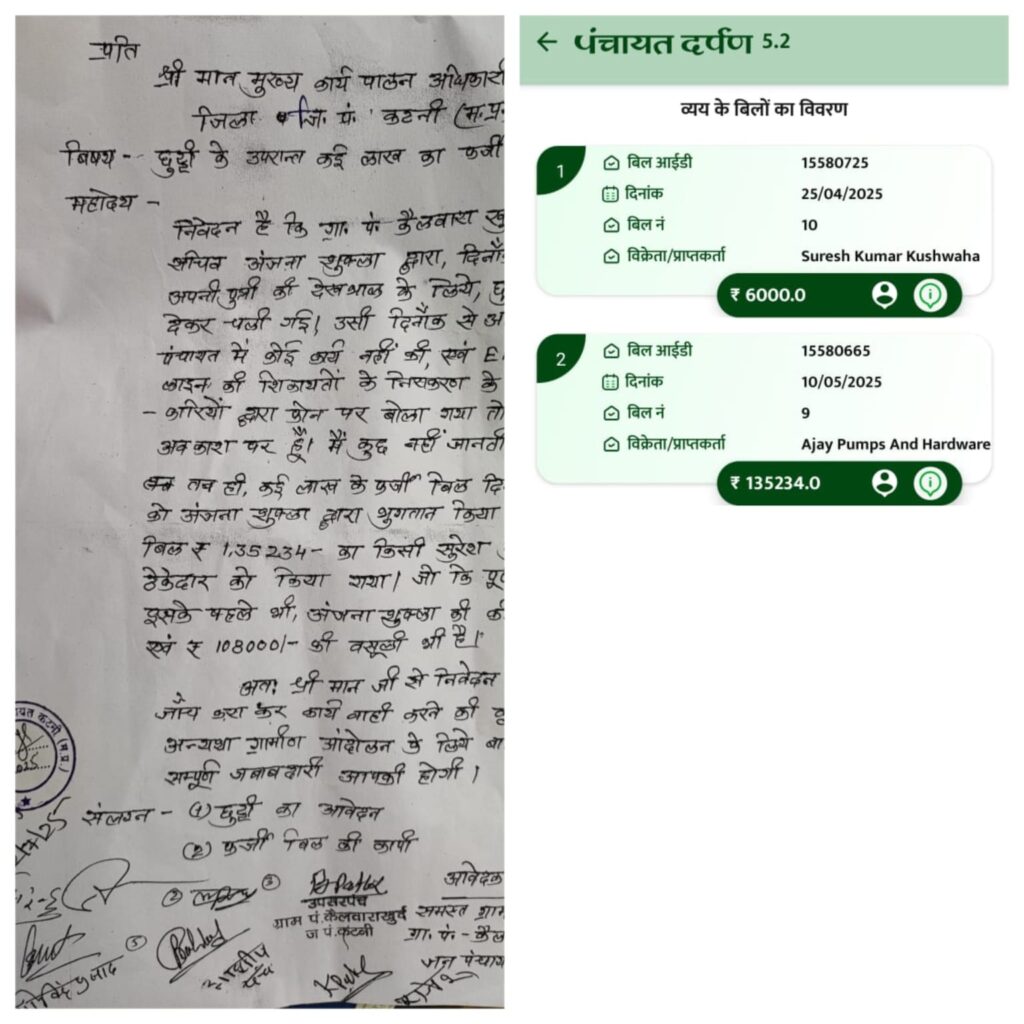 प्रति
श्री मान मुख्य कार्य पालन अधिकारी
जिला जि. पं. कटनी (म.प्र.
बिषय - छुट्टी के उपरान्त कई लाख का फर्जी
महोदय -
निवेदन है कि ग्रा. पं. कैलवारा खु
सचिव अंजना शुक्ला द्वारा, दिनाँ
अपनी पुत्री की देखभाल के लिये, छु
देकर चली गई। उसी दिनाँक से अ
पंचायत में कोई कार्य नहीं की, एवं E.
लाइन की शिकायतों के निराकरण के
- कारियों द्वारा फोन पर बोला गया तो
अवकाश पर हूँ। मैं कुछ नहीं जानती
तब ही, कई लाख के फर्जी बिल दि
को अंजना शुक्ला द्वारा भुगतान किया
बिल ₹ 1,35234- का किसी सुरेश
ठेकेदार को किया गया। जो कि पू
इसके पहले भी, अंजना शुक्ला की क
एवं ₹ 108000/- की वसूली भी है।
अतः श्री मान जी से निवेदन
जाँच करा कर कार्य वाही करने की कृ
अन्यथा ग्रामीण आंदोलन के लिये बा
सम्पूर्ण जबाबदारी आपकी होगी।
संलग्न - (1) छुट्टी का आवेदन
(2) फर्जी बिल की कापी
आवेदक
उपसरपंच
ग्राम पं. कैलवाराखुर्द
ज पं. कटनी
समस्त ग्राम
ग्रा. पं. - कैल
जन पंचाय
← पंचायत दर्पण 5.2
व्यय के बिलों का विवरण
1
बिल आईडी 15580725
दिनांक 25/04/2025
बिल नं 10
विक्रेता/प्राप्तकर्ता Suresh Kumar Kushwaha
₹ 6000.0
2
बिल आईडी 15580665
दिनांक 10/05/2025
बिल नं 9
विक्रेता/प्राप्तकर्ता Ajay Pumps And Hardware
₹ 135234.0